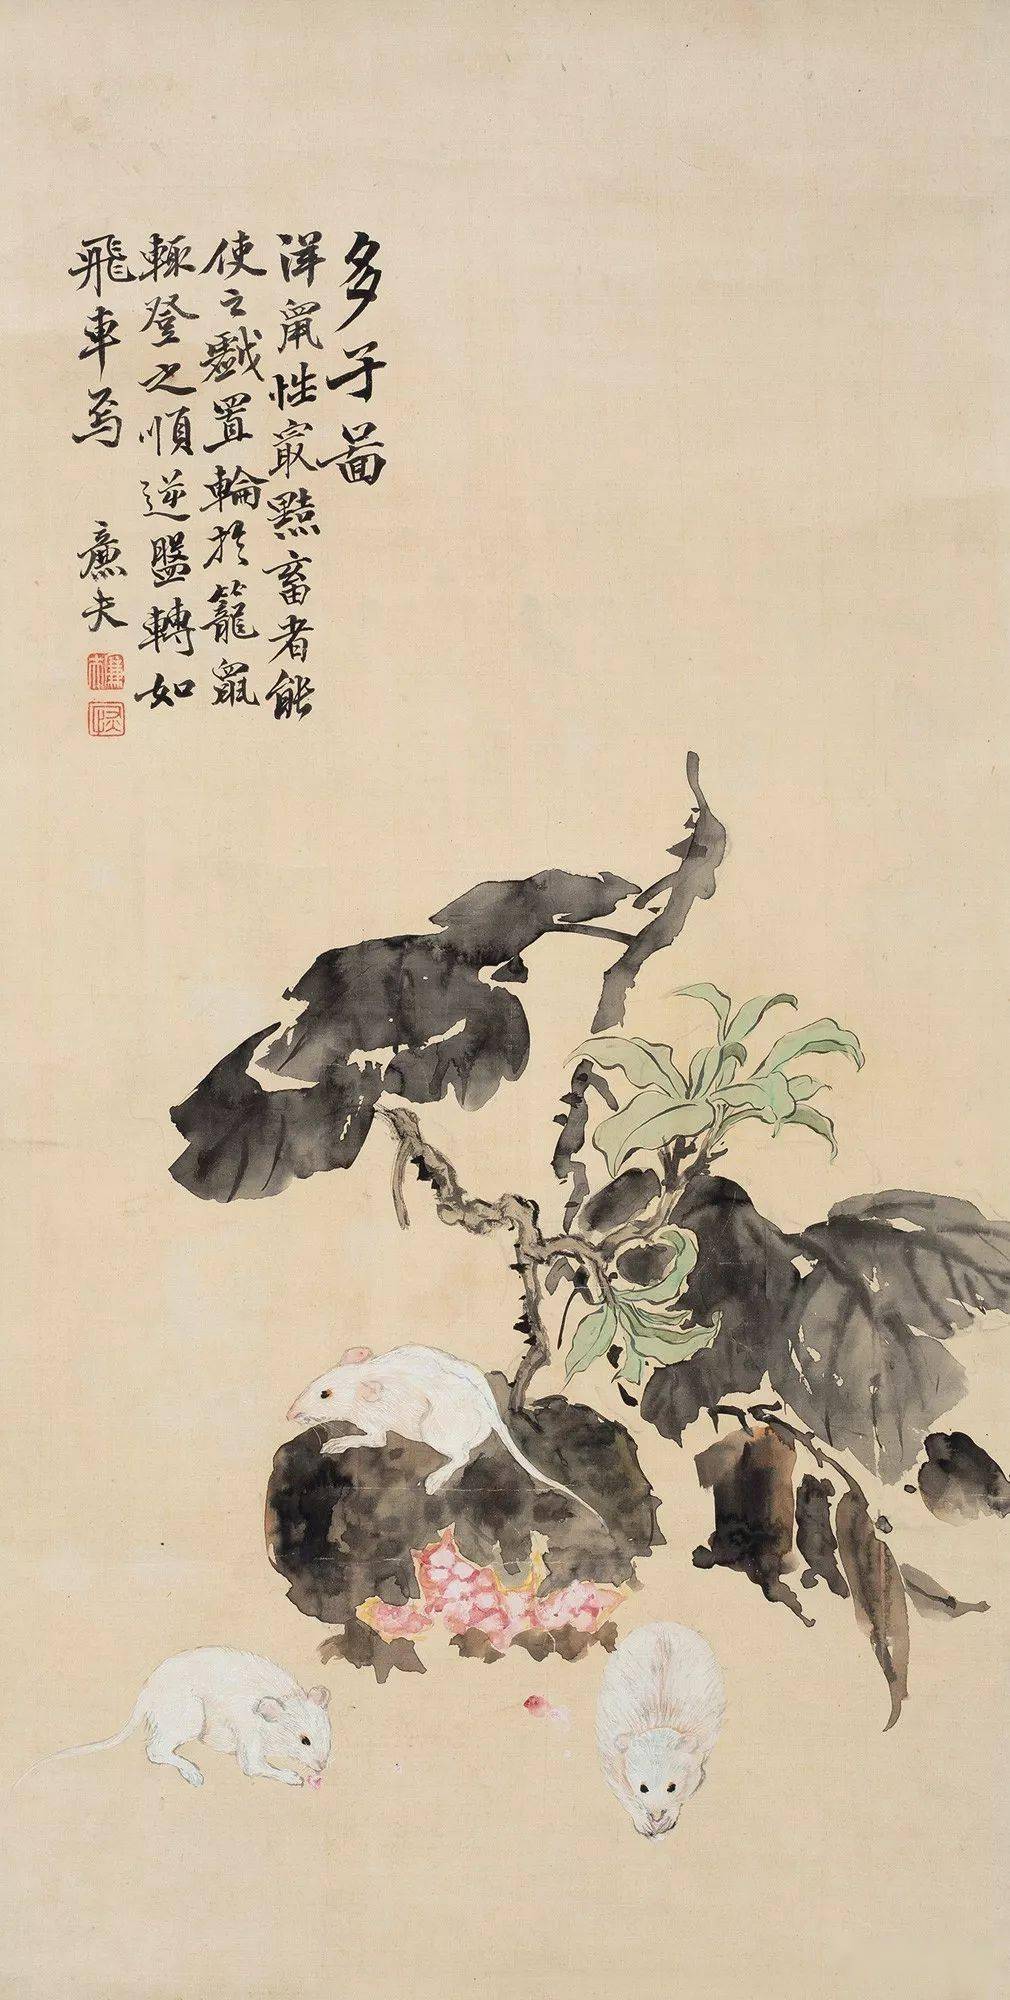 多子啚
洋鼠性冣黠畜者能
使之戲置輪於籠鼠
輒登之順逆盤轉如
飛車焉
廉夫